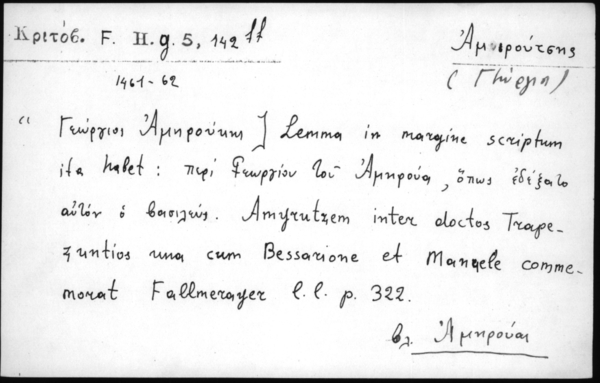 Κριτόβ. F. H. g. 5, 142 ff
Ἀμιρούτσης
1461-62
(Γεώργιος)
" Γεώργιος Ἀμηρούκης ] Lemma in margine scriptum
ita habet : περὶ Γεωργίου τοῦ Ἀμηρούα, ὅπως ἐδέξατο
αὐτόν ὁ βασιλεύς. Amyrutzem inter doctos Trape-
zuntios una cum Bessarione et Manuele comme-
morat Fallmerayer l.l. p. 322.
βλ. Ἀμηρούας